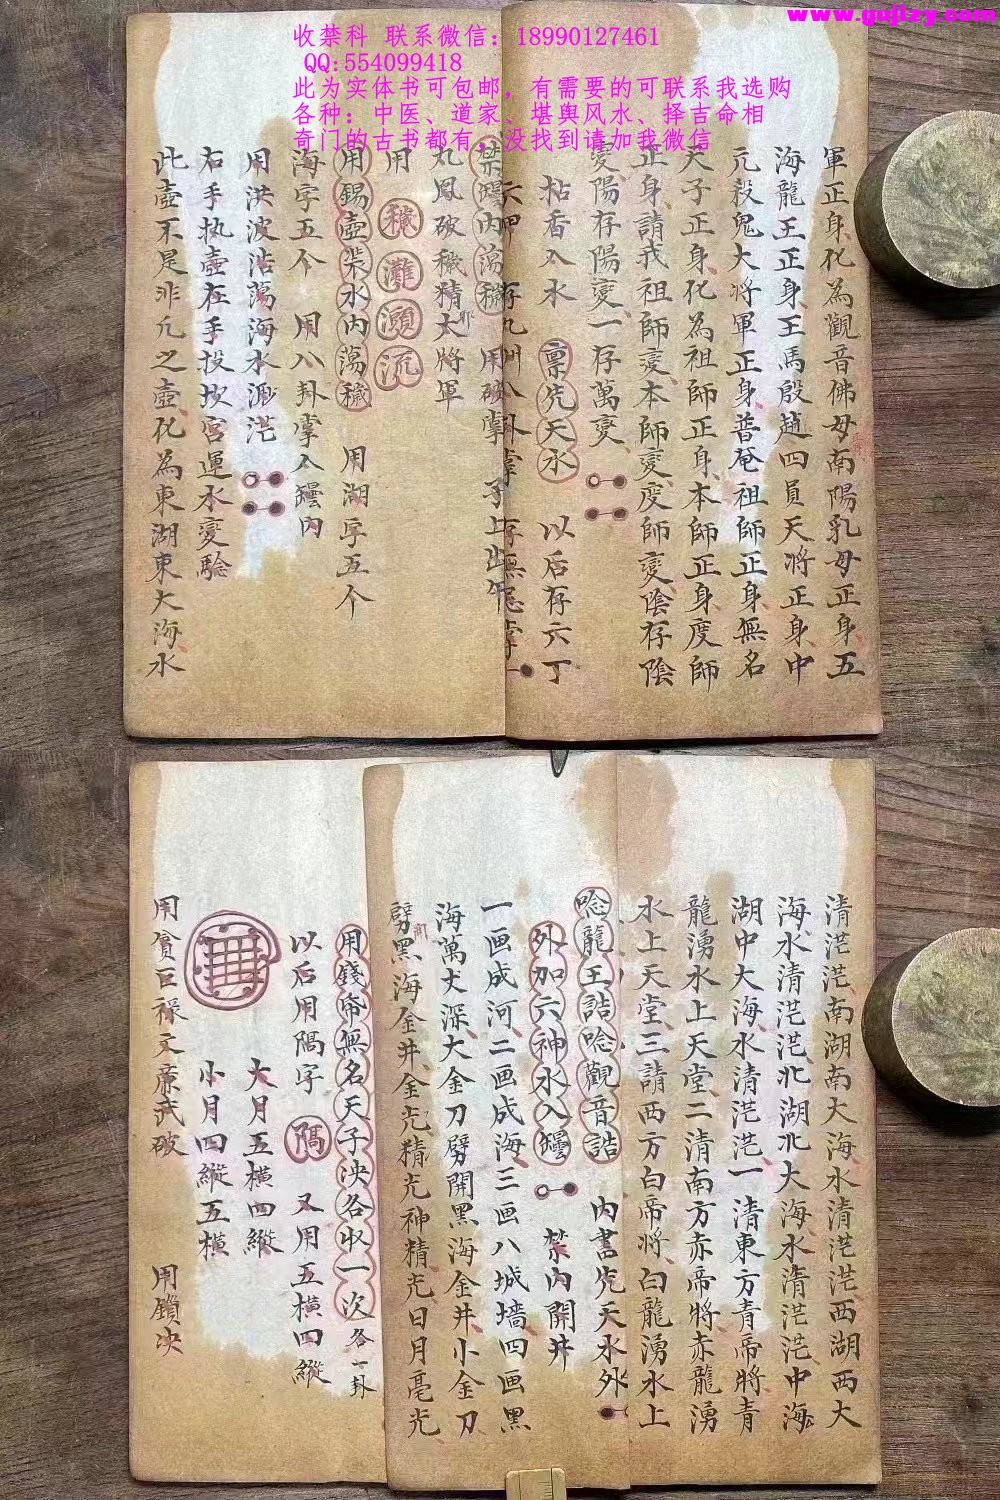 www.gujizy.com
收禁科 联系微信：18990127461
QQ:554099418
此为实体书可包邮，有需要的可联系我选购
各种：中医、道家、堪舆风水、择吉命相
奇门的古书都有，没找到请加我微信
軍正身化為觀音佛母南陽乳母正身五
海龍王正身王馬殷趙四員天将正身中
元殺鬼大将軍正身普奄祖師正身無名
天子正身化為祖師正身本師正身度師
正身請我祖師变本師变度師变陰存陰
变陽存陽变一存萬变
拈香入水 禀先天水 以后存六丁
六甲 存九州八卦掌
禁壜内蕩穢 用破掌
丸鳳破穢精大將軍
用 穢灘灝沉
用錫壺装水内蕩穢 用湖字五个
海字五个 用八卦掌入罈内
用洪波浩蕩海水渺茫
右手执壺在手投坎宮運水变驗
此壺不是非凡之壺化為東湖東大海水
清茫茫南湖南大海水清茫茫西湖西大
海水清茫茫北湖北大海水清茫茫中海
湖中大海水清茫茫一清東方青帝將青
龍湧水上天堂二清南方赤帝將赤龍湧
水上天堂三請西方白帝將白龍湧水上
唸龍王誥唸觀音誥 内書先天水外
外加六神水入罈 禁内開井
一画成河二画成海三画八城墙四画黑
海萬丈深大金刀劈開黑海金井小金刀
劈黑海金井金光精光神精光日月毫光
用錢帝無名天子决各收一次各一卦
以后用隔字 隔 又用五横四縱
大月五横四縱
小月四縱五横
用貪巨禄文廉武破 用鎖决